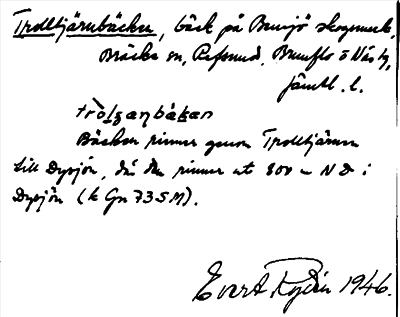 Trolltjärnbäcken, bäck på Bensjö skogsmark,
Bräcke sn, Refsund, Brunflo o Näs tg,
Jämtl. l.
Bäcken rinner genom Trolltjärnen
till Dysjön, då den rinner ut 800 m NO i
Dysjön (k Gn 73 SM).
Evert 1946.